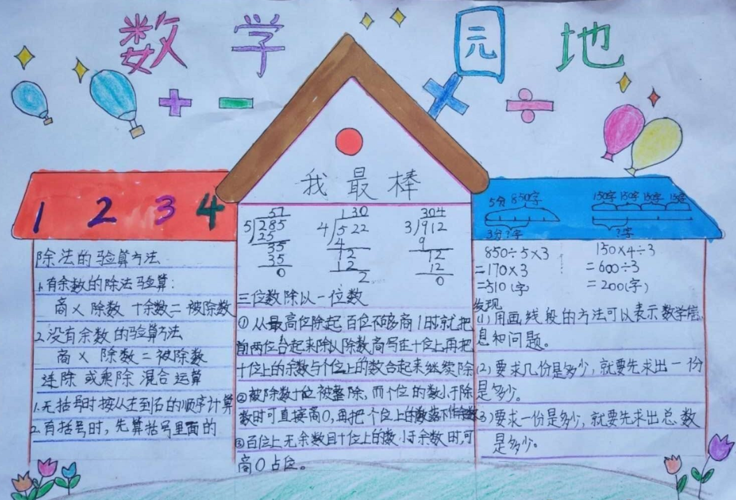 数 学 园 地
+ − × ÷
我 最 棒
1 2 3 4
除法的验算方法
1.有余数的除法验算:
商×除数十余数=被除数
2.没有余数的验算方法
商×除数=被除数
连除 或乘除 混合运算
1.无括号时按从左到右的顺序计算
2.有括号时,先算括号里面的
57
5√285
25
35
35
0
130
4√522
4
12
12
2
304
3√912
9
12
12
0
三位数除以一位数
①从最高位除起 百位不够商1时就把
前两位合起来除以除数商写在十位上再把
十位上的余数与个位上的数合起来继续除
②被除数十位被整除,而个位的数小于除
数时可直接商0,再把个位上的数落下作余数
③百位上无余数且十位上的数 时,可
商0占位。
5分850字
3分?字
150字 150字 150字 150字
?字
850÷5×3
=170×3
=510(字)
150×4÷3
=600÷3
=200(字)
发现
(1)用画线段的方法可以表示数学信
息和问题。
(2)要求几份是多少,就要先求出一份
是多少。
(3)要求一份是多少,就要先求出总数
是多少。